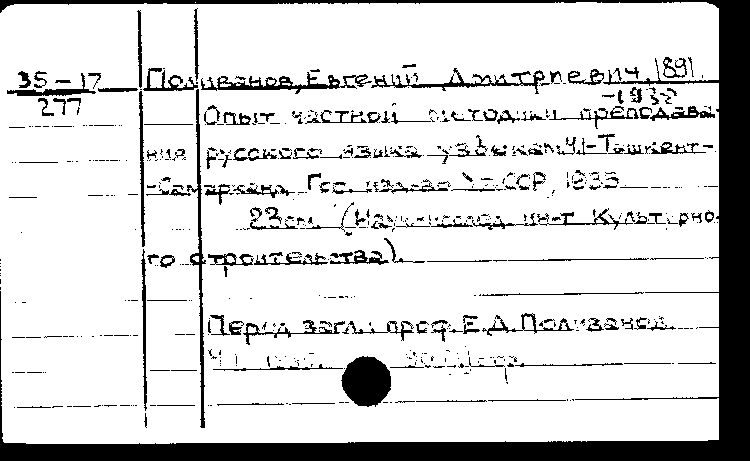 35-17
277
Поливанов, Евгений Дмитриевич, 1891
-1938
Опыт частной методики преподава-
ния русского языка узбекам. Ч.1-Ташкент-
-Самарканд, Гос. изд-во УзССР, 1935
23см. (Науч.-исслед. ин-т культурно-
го строительства).
Перед загл.: проф. Е.Д. Поливанов.
Ч.1. 1935. стр.